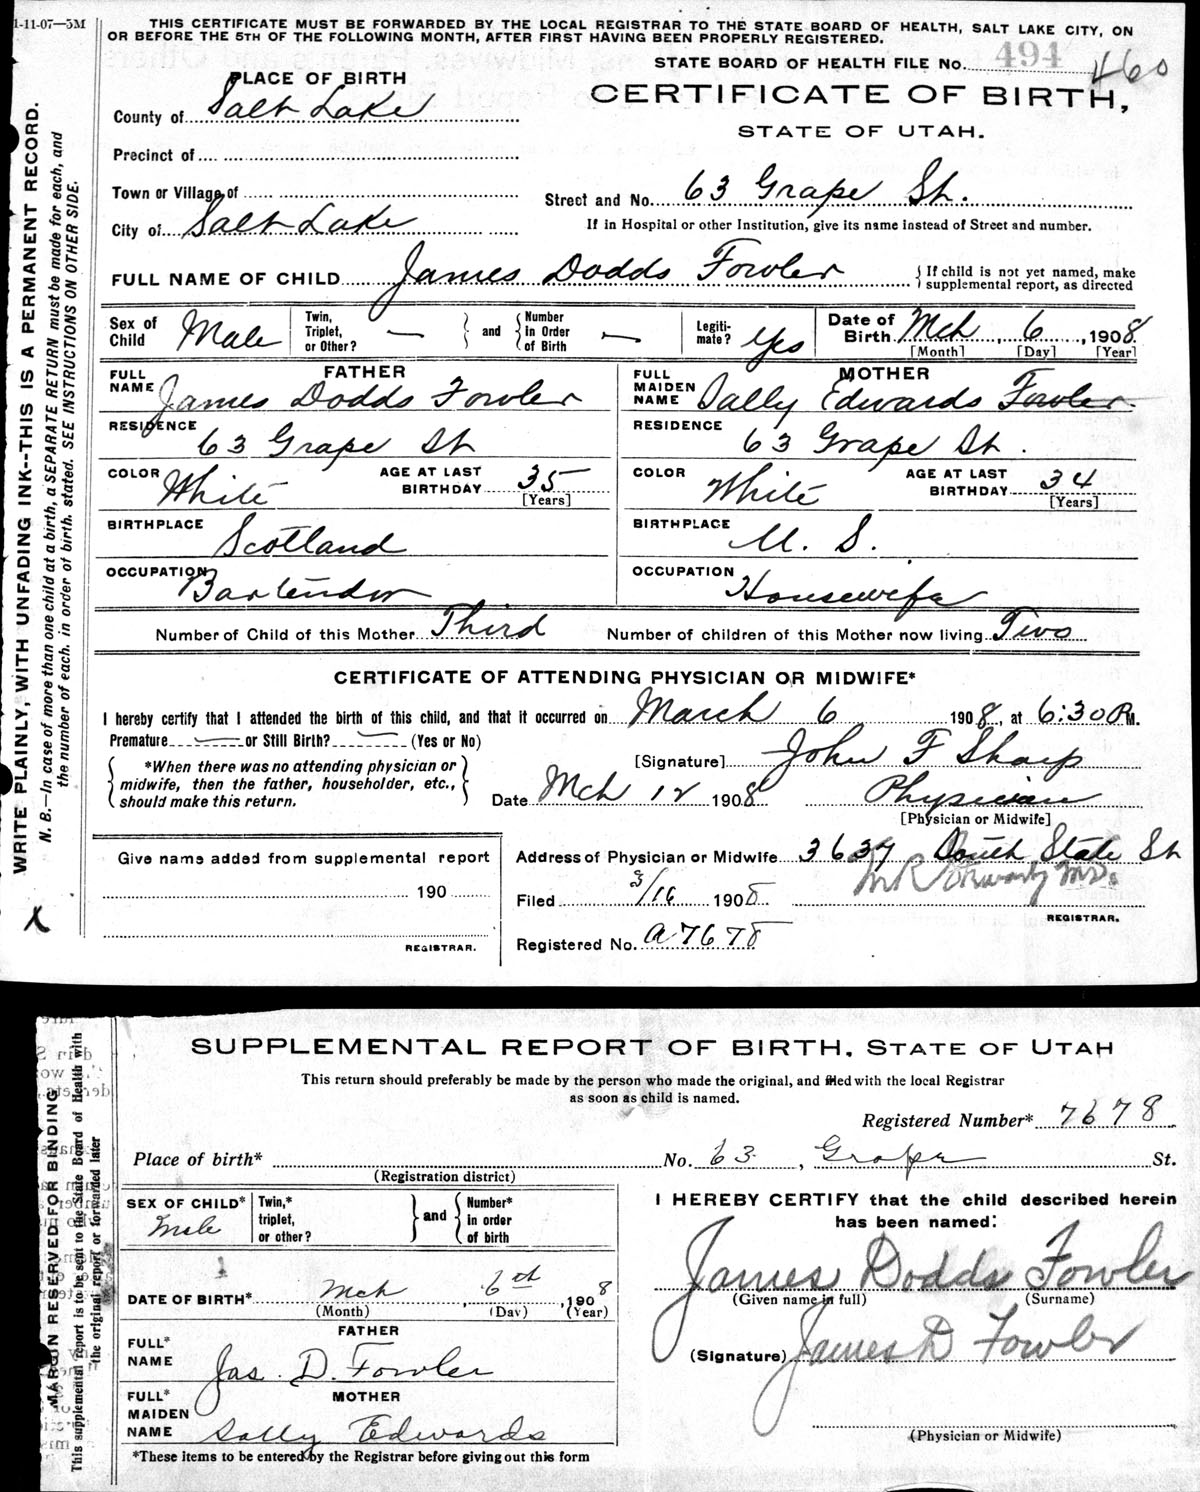 1-11-07—5M
THIS CERTIFICATE MUST BE FORWARDED BY THE LOCAL REGISTRAR TO THE STATE BOARD OF HEALTH, SALT LAKE CITY, ON
OR BEFORE THE 5TH OF THE FOLLOWING MONTH, AFTER FIRST HAVING BEEN PROPERLY REGISTERED.
STATE BOARD OF HEALTH FILE No. 494 460
PLACE OF BIRTH
CERTIFICATE OF BIRTH,
STATE OF UTAH.
County of Salt Lake
Precinct of
Town or Village of
Street and No. 63 Grape St.
City of Salt Lake
If in Hospital or other Institution, give its name instead of Street and number.
FULL NAME OF CHILD James Dodds Fowler
If child is not yet named, make
supplemental report, as directed
Sex of Child Male
Twin, Triplet, or Other? —
and
Number in Order of Birth —
Legitimate? Yes
Date of Birth Mch 6, 1908
[Month] [Day] [Year]
FATHER
FULL NAME James Dodds Fowler
MOTHER
FULL MAIDEN NAME Sally Edwards Fowler
RESIDENCE 63 Grape St
RESIDENCE 63 Grape St.
COLOR White AGE AT LAST BIRTHDAY 35 [Years]
COLOR White AGE AT LAST BIRTHDAY 34 [Years]
BIRTHPLACE Scotland
BIRTHPLACE U. S.
OCCUPATION Bartender
OCCUPATION Housewife
Number of Child of this Mother Third Number of children of this Mother now living Two
CERTIFICATE OF ATTENDING PHYSICIAN OR MIDWIFE*
I hereby certify that I attended the birth of this child, and that it occurred on March 6 1908, at 6:30 P.M.
Premature — or Still Birth? — (Yes or No)
*When there was no attending physician or
midwife, then the father, householder, etc.,
should make this return.
[Signature] John F Sharp
Date Mch 12 1908 Physician
[Physician or Midwife]
Give name added from supplemental report
190
REGISTRAR.
Address of Physician or Midwife 3637 South State St
Filed 3/16 1908
REGISTRAR.
Registered No. A7678
WRITE PLAINLY, WITH UNFADING INK--THIS IS A PERMANENT RECORD.
N. B.—In case of more than one child at a birth, a SEPARATE RETURN must be made for each, and
the number of each, in order of birth, stated. SEE INSTRUCTIONS ON OTHER SIDE.
X
SUPPLEMENTAL REPORT OF BIRTH, STATE OF UTAH
This return should preferably be made by the person who made the original, and filed with the local Registrar
as soon as child is named.
Registered Number* 7678
Place of birth* No. 63, Grape St.
(Registration district)
SEX OF CHILD* Male
Twin,* triplet, or other?
and
Number* in order of birth
I HEREBY CERTIFY that the child described herein
has been named:
James Dodds Fowler
(Given name in full) (Surname)
1
DATE OF BIRTH* Mch, 6th, 1908
(Month) (Day) (Year)
FATHER
FULL* NAME Jas. D. Fowler
(Signature) James D Fowler
MOTHER
FULL* MAIDEN NAME Sally Edwards
(Physician or Midwife)
*These items to be entered by the Registrar before giving out this form
MARGIN RESERVED FOR BINDING
This supplemental report is to be sent to the State Board of Health with
the original report or forwarded later